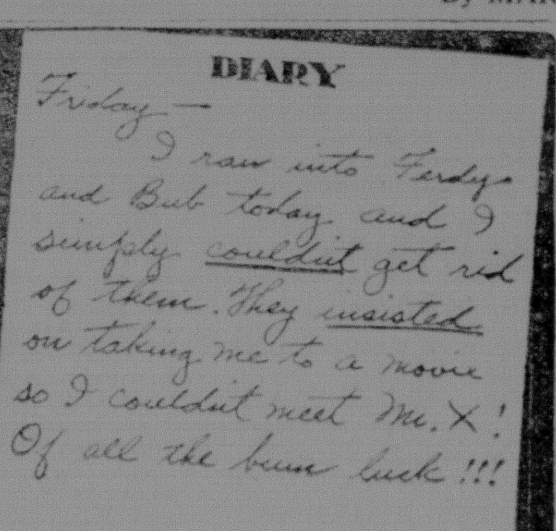 By MAR
DIARY
Friday —
I ran into Ferdy
and Bub today and I
simply couldn't get rid
of them. They insisted
on taking me to a movie
so I couldn't meet Mr. X!
Of all the bum luck!!!